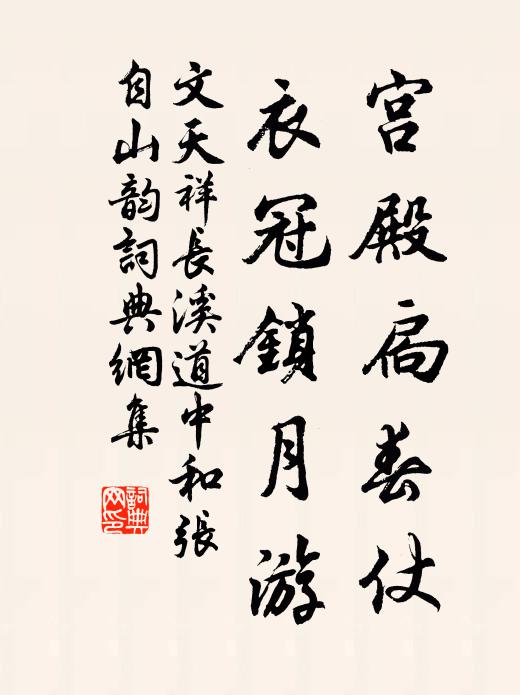 宫殿扃春仗
衣冠鎖月游
文天祥長溪道中和張
自山韵詞典網集
詞典
网印